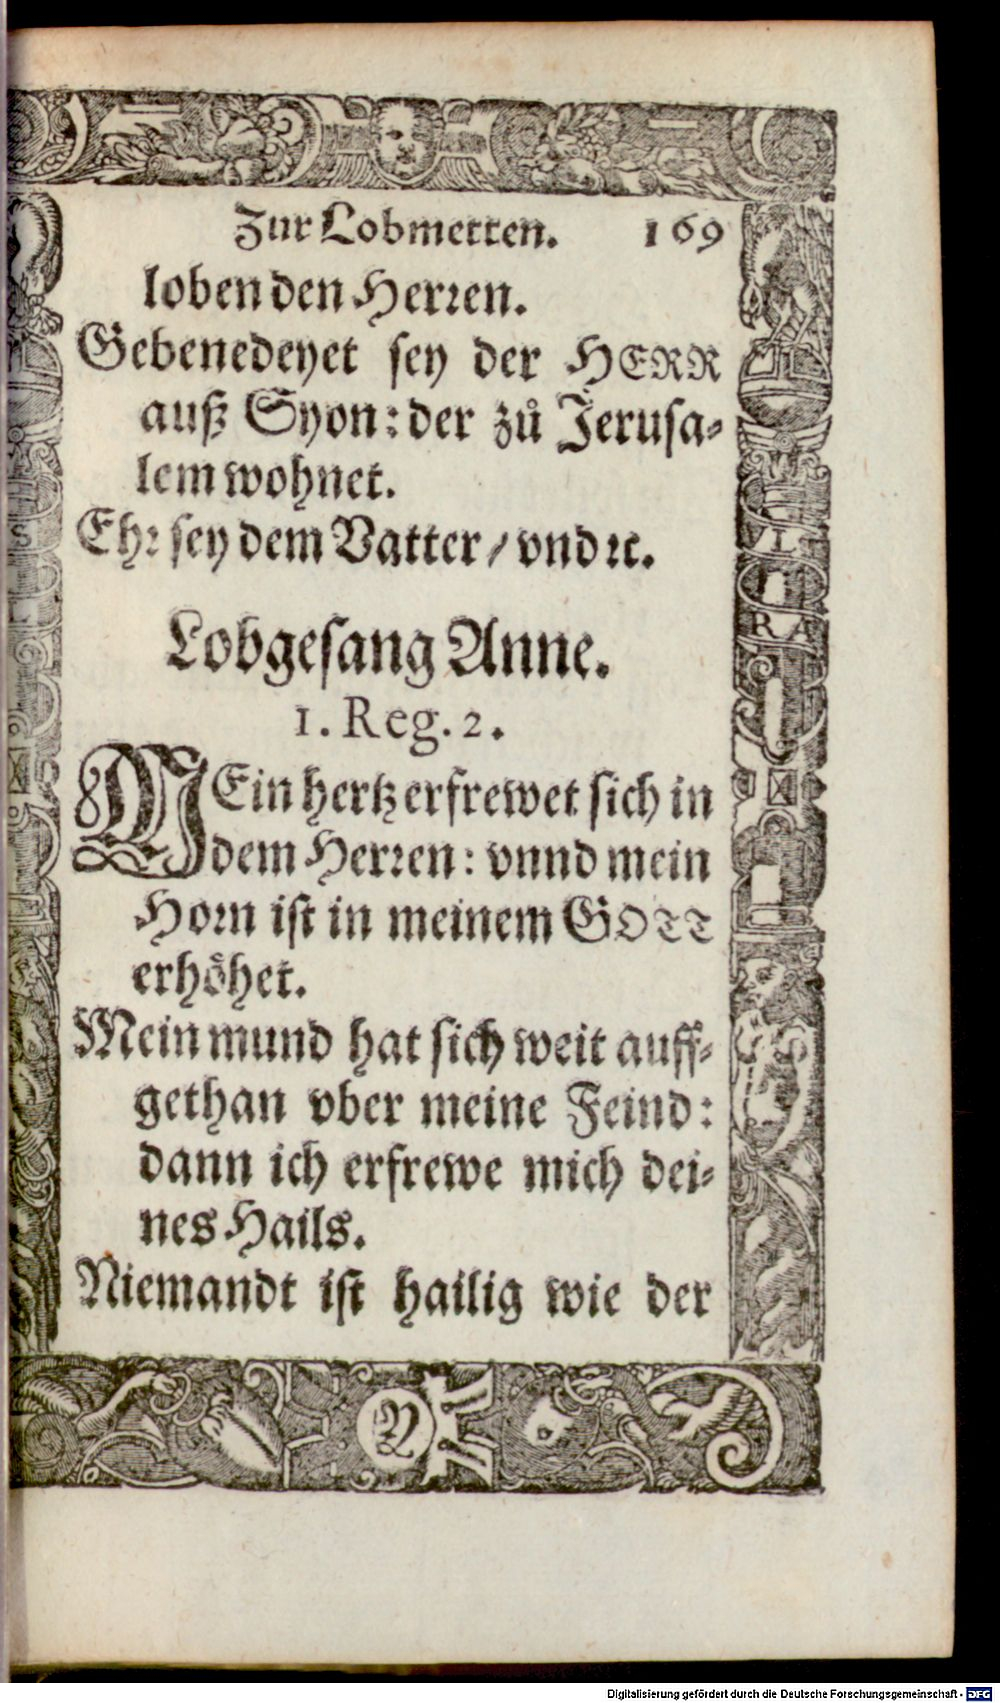 Zur Lobmetten. 169
loben den Herꝛen.
Gebenedeyet sey der HERR
auß Syon: der zů Jerusa-
lem wohnet.
Ehꝛ sey dem Vatter / vnd ꝛc.
Lobgesang Anne.
1. Reg. 2.
MEin hertz erfrewet sich in
dem Herꝛen: vnnd mein
Hoꝛn ist in meinem GOTT
erhöhet.
Mein mund hat sich weit auff-
gethan vber meine Feind:
dann ich erfrewe mich dei-
nes Hails.
Niemandt ist hailig wie der
S
L
RA
Digitalisierung gefördert durch die Deutsche Forschungsgemeinschaft - DFG